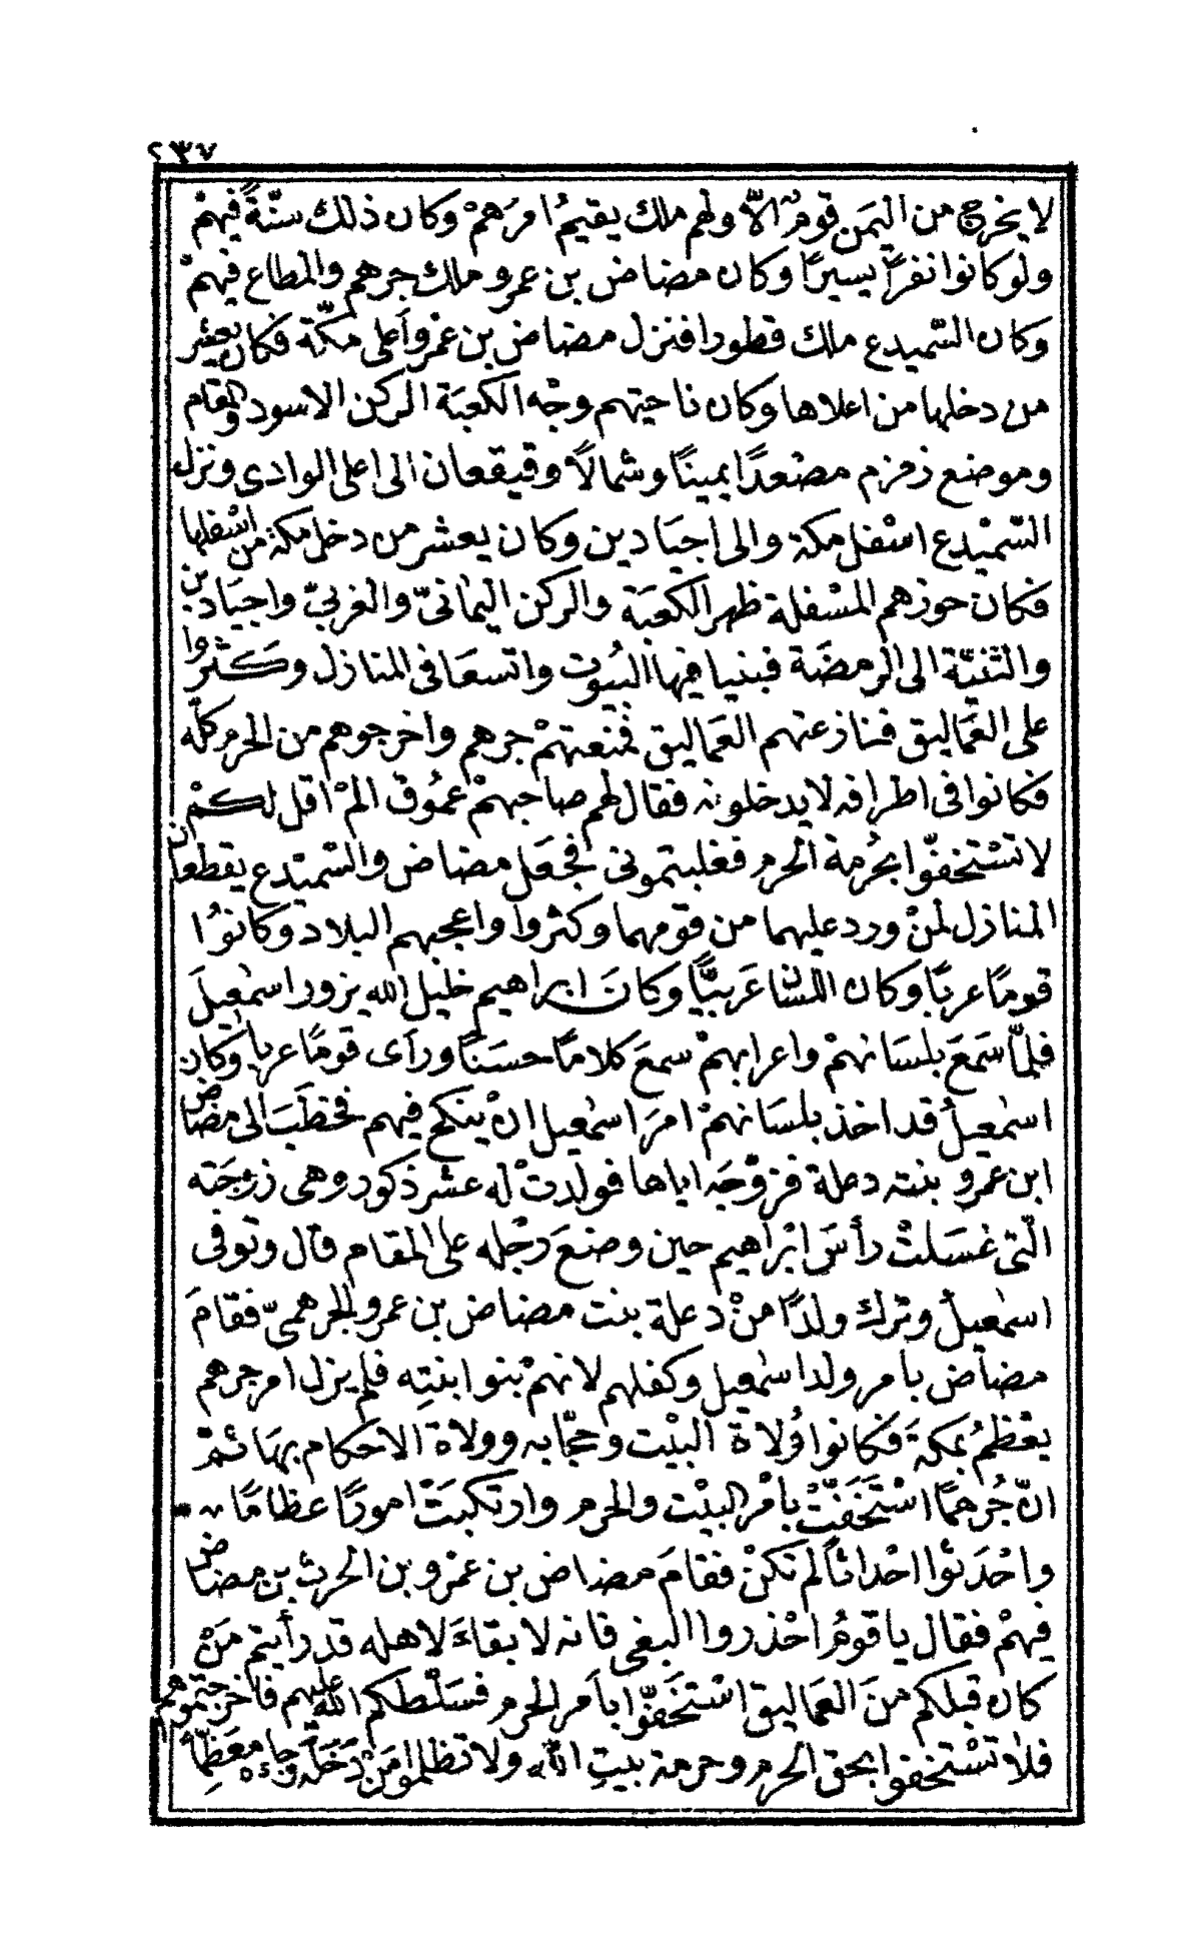 ٢٣٧
لا يخرج من اليَمَن قومٌ الّا ولهم ملك يقيمُ امرَهمْ وكان ذلك سنّةً فيهمْ
ولو كانوا نفرًا يسيرًا وكان مضاض بن عمرو ملك جرهم والمطاع فيهمْ
وكان السّميدع ملك قطورا فنزل مضاض بن عمْرو أعلى مكّة فكان يعشر
من دخلها من اعلاها وكان ناحيتهم وجْه الكعبَة الركن الاسود والمقام
وموضع زمزم مصْعدًا يمينًا وشمالًا وقيقعان الى اعلى الوادى ونزل
السّميْدع اسْفل مكة والى اجيَادين وكان يعشر من دخل مكة من اسْفلها
فكان حوزهم المسْفلة ظهر الكعبَة والركن اليمَانىّ والغربىّ واجيَادين
والثنيّة الى الرمضَة فبنيا فيها البيُوت واتسعَا فى المنازل وكَثروا
على العَماليق فنازعتهم العَماليق فمنعتهمْ جرهم واخرجوهم من الحرم كلّه
فكانوا فى اطرافه لا يدخلونه فقال لهم صاحبهمْ عمُوق المْ اقل لكمْ
لا تسْتخفّوا بحُرمة الحرم فغلبتمونى فجعَل مضاض والسّميْدع يقطعان
المنازل لمنْ ورد عليهما من قومهما وكثروا واعجبهم البلاد وكانوُا
قومًا عربًا وكان اللسان عَربيًّا وكانَ ابراهيم خليل الله يزور اسمٰعيلَ
فلمّا سَمعَ بلسَانهمْ واعرابهمْ سمعَ كلامًا حسَنًا ورأى قومًا عربًا وكان
اسمٰعيلُ قد اخذ بلسَانهمْ امرَ اسمٰعيل انْ ينكح فيهم فخطَبَ الى مضاض
ابن عمرو بنته دعلة فزوّجَه اياها فولدتْ له عشر ذكور وهى زوْجَته
الّتى غسَلتْ رأسَ ابْراهيم حين وضعَ رجْله على المقام قال وتوفى
اسمٰعيلُ وترك ولدًا منْ دعلة بنت مضاض بن عمرو الجرهمىّ فقامَ
مضاض بامر ولد اسمٰعيل وكفلهم لانهمْ بنو ابنتِه فلم يزل امر جرهم
يعْظمُ بمكةَ فكانوا وُلاة البيْت وحجّابه وولاة الاحكام بهَا ثمّ
انّ جُرهمًا اسْتَخَفّتْ بامْر البيْت والحرم وارتكبَتْ امورًا عظامًا
واحْدَثوا احْداثًا لم تكنْ فقامَ مضاض بن عمْرو بن الحرث بن مضاض
فيهمْ فقال يا قومُ احْذروا البغى فانه لا بقاءَ لاهله قد رأيتم مَنْ
كان قبلكم منَ العَماليق اسْتخَفّوا بأمر الحرم فسَلّطكم اللّٰه عليهم فأخرجتموهم
فلا تسْتخفوا بحق الحرم وحرمة بيتِ اللّٰه ولا تظلموا مَنْ دَخَلَه وجاءه معَظِّمًا